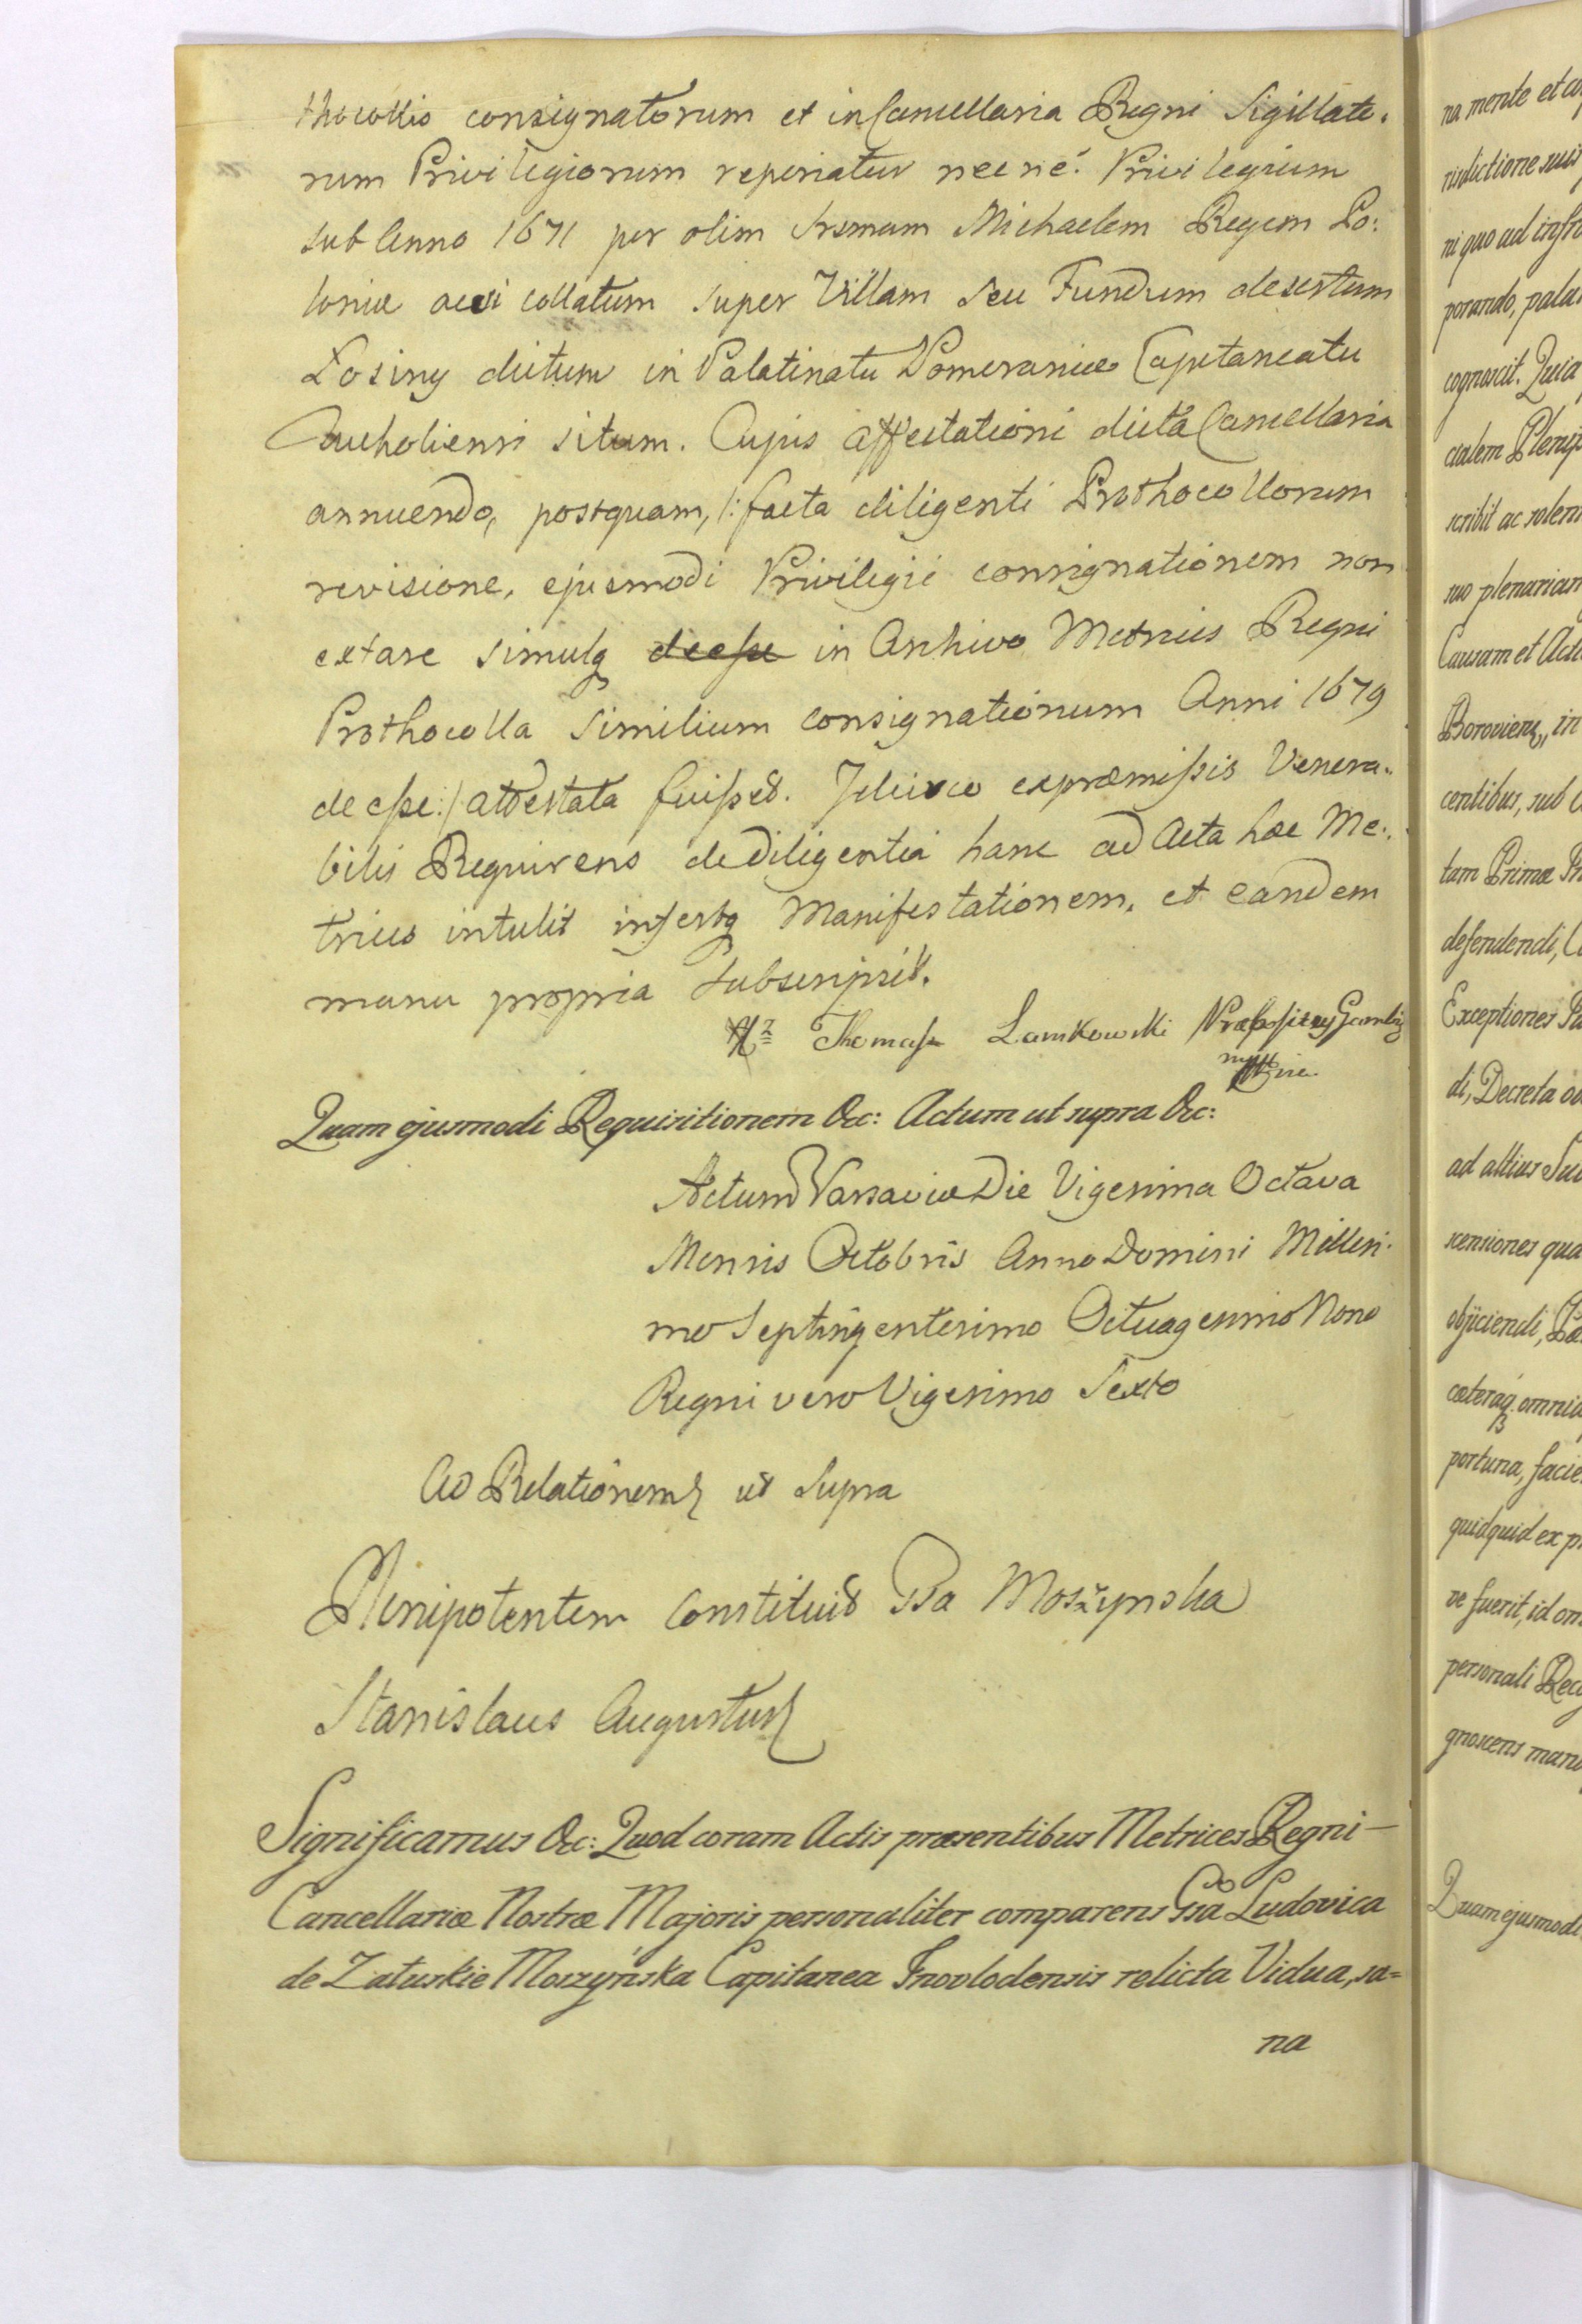 thocollis consignatorum et in Cancellaria Regni Sigillato.
rum Privilegiorum reperiatur nec ne? Privilegium
sub Anno 1671 per olim Srsmum Michaelem Regem Po:
loniæ collatum super Villam seu Fundum desertum
Łosiny dictum in Palatinatu Pomeraniæ Capitaneatu
Tucholiensi situm. Cujus affectationi dicta Cancellaria
annuendo, postquam, /: facta diligenti Prothocollorum
revisione, ejusmodi Privilegii consignationem non
extare simulq in Archivo Metrices Regni
Prothocolla similium consignationum Anni 1679
deesse :/ attestata fuisset. Idcirco ex præmissis Venera..
bilis Requirens de Diligentia hanc ad Acta hæc Me..
trices intulit insertq Manifestationem, et eandem
manu propria subscripsit.
Thomas Lamkowski
Quam ejusmodi Requisitionem &c: Actum ut supra &c:
Actum Varsaviæ Die Vigesima Octava
Mensis Octobris Anno Domini Millesi.
mo Septingentesimo Octuagesimo Nono
Regni vero Vigesimo Sexto
Ad Relationem ut Supra
Plenipotentem Constituit Gsa Moszynska
Stanislaus Augustus
Significamus &c: Quod coram Actis præsentibus Metrices Regni –
Cancellariæ Nostræ Majoris personaliter comparens Gsa Ludovica
de Załuskie Moszyńska Capitanea Inovlodensis relicta Vidua, sa=
na
na mente et co
risdictione suis
ni quo ad infra
porando, pala
cognoscit. Quia
cialem Plenip
scribit ac solen
suo plenariam
Causam et Acti
Boroviens, in
centibus, sub
tam Primæ
defendendi,
Exceptiones
di, Decreta
ad altius Su
scensiones qua
objiciendi,
cæteraq omnia
portuna, facie
quidquid ex p
ve fuerit, id om
personali Reco
gnoscens manu
Quam ejusmodi